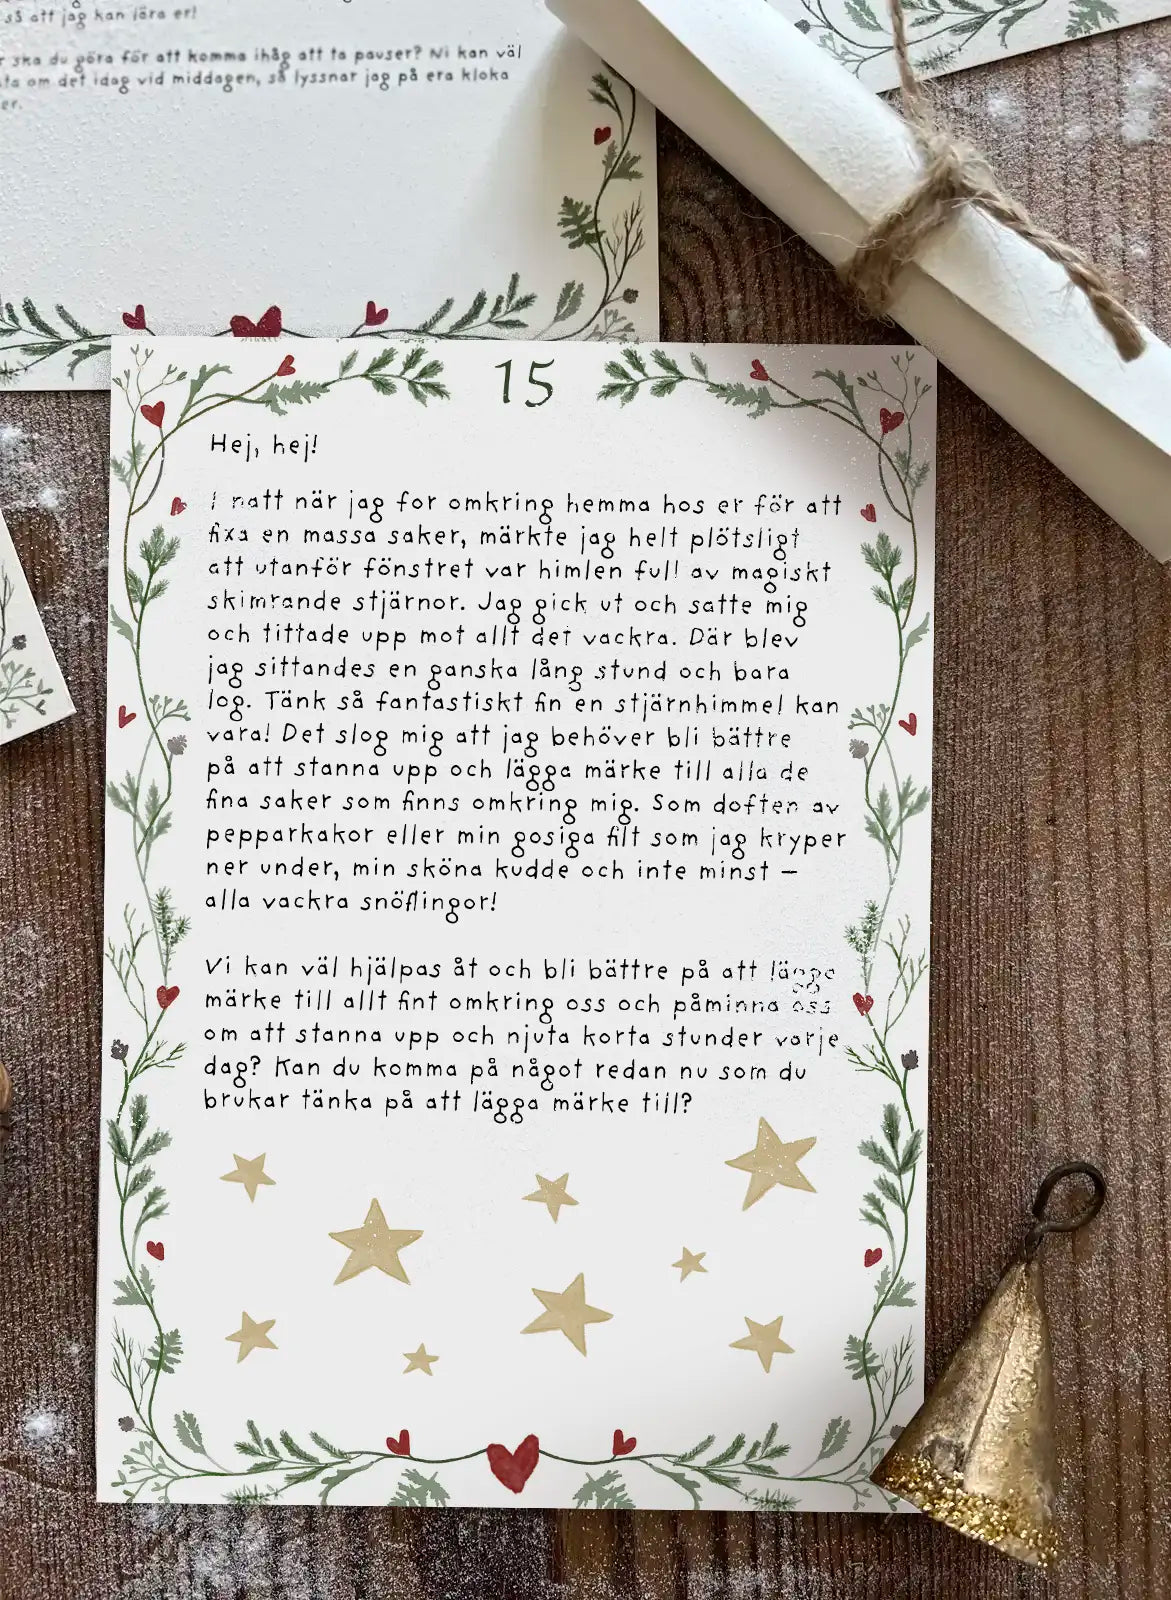 så att jag kan lära er!
ska du göra för att komma ihåg att ta pauser? Ni kan väl
om det idag vid middagen, så lyssnar jag på era kloka
15
Hej, hej!
I natt när jag for omkring hemma hos er för att
fixa en massa saker, märkte jag helt plötsligt
att utanför fönstret var himlen full av magiskt
skimrande stjärnor. Jag gick ut och satte mig
och tittade upp mot allt det vackra. Där blev
jag sittandes en ganska lång stund och bara
log. Tänk så fantastiskt fin en stjärnhimmel kan
vara! Det slog mig att jag behöver bli bättre
på att stanna upp och lägga märke till alla de
fina saker som finns omkring mig. Som doften av
pepparkakor eller min gosiga filt som jag kryper
ner under, min sköna kudde och inte minst –
alla vackra snöflingor!
Vi kan väl hjälpas åt och bli bättre på att lägga
märke till allt fint omkring oss och påminna oss
om att stanna upp och njuta korta stunder varje
dag? Kan du komma på något redan nu som du
brukar tänka på att lägga märke till?